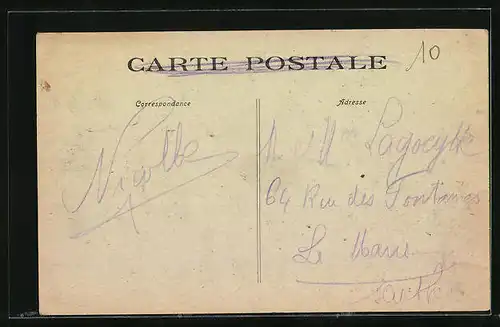 CARTE POSTALE
10
Correspondance
Adresse
Nicolle
64 Rue des Fontaines
Le Mans
Sarthe